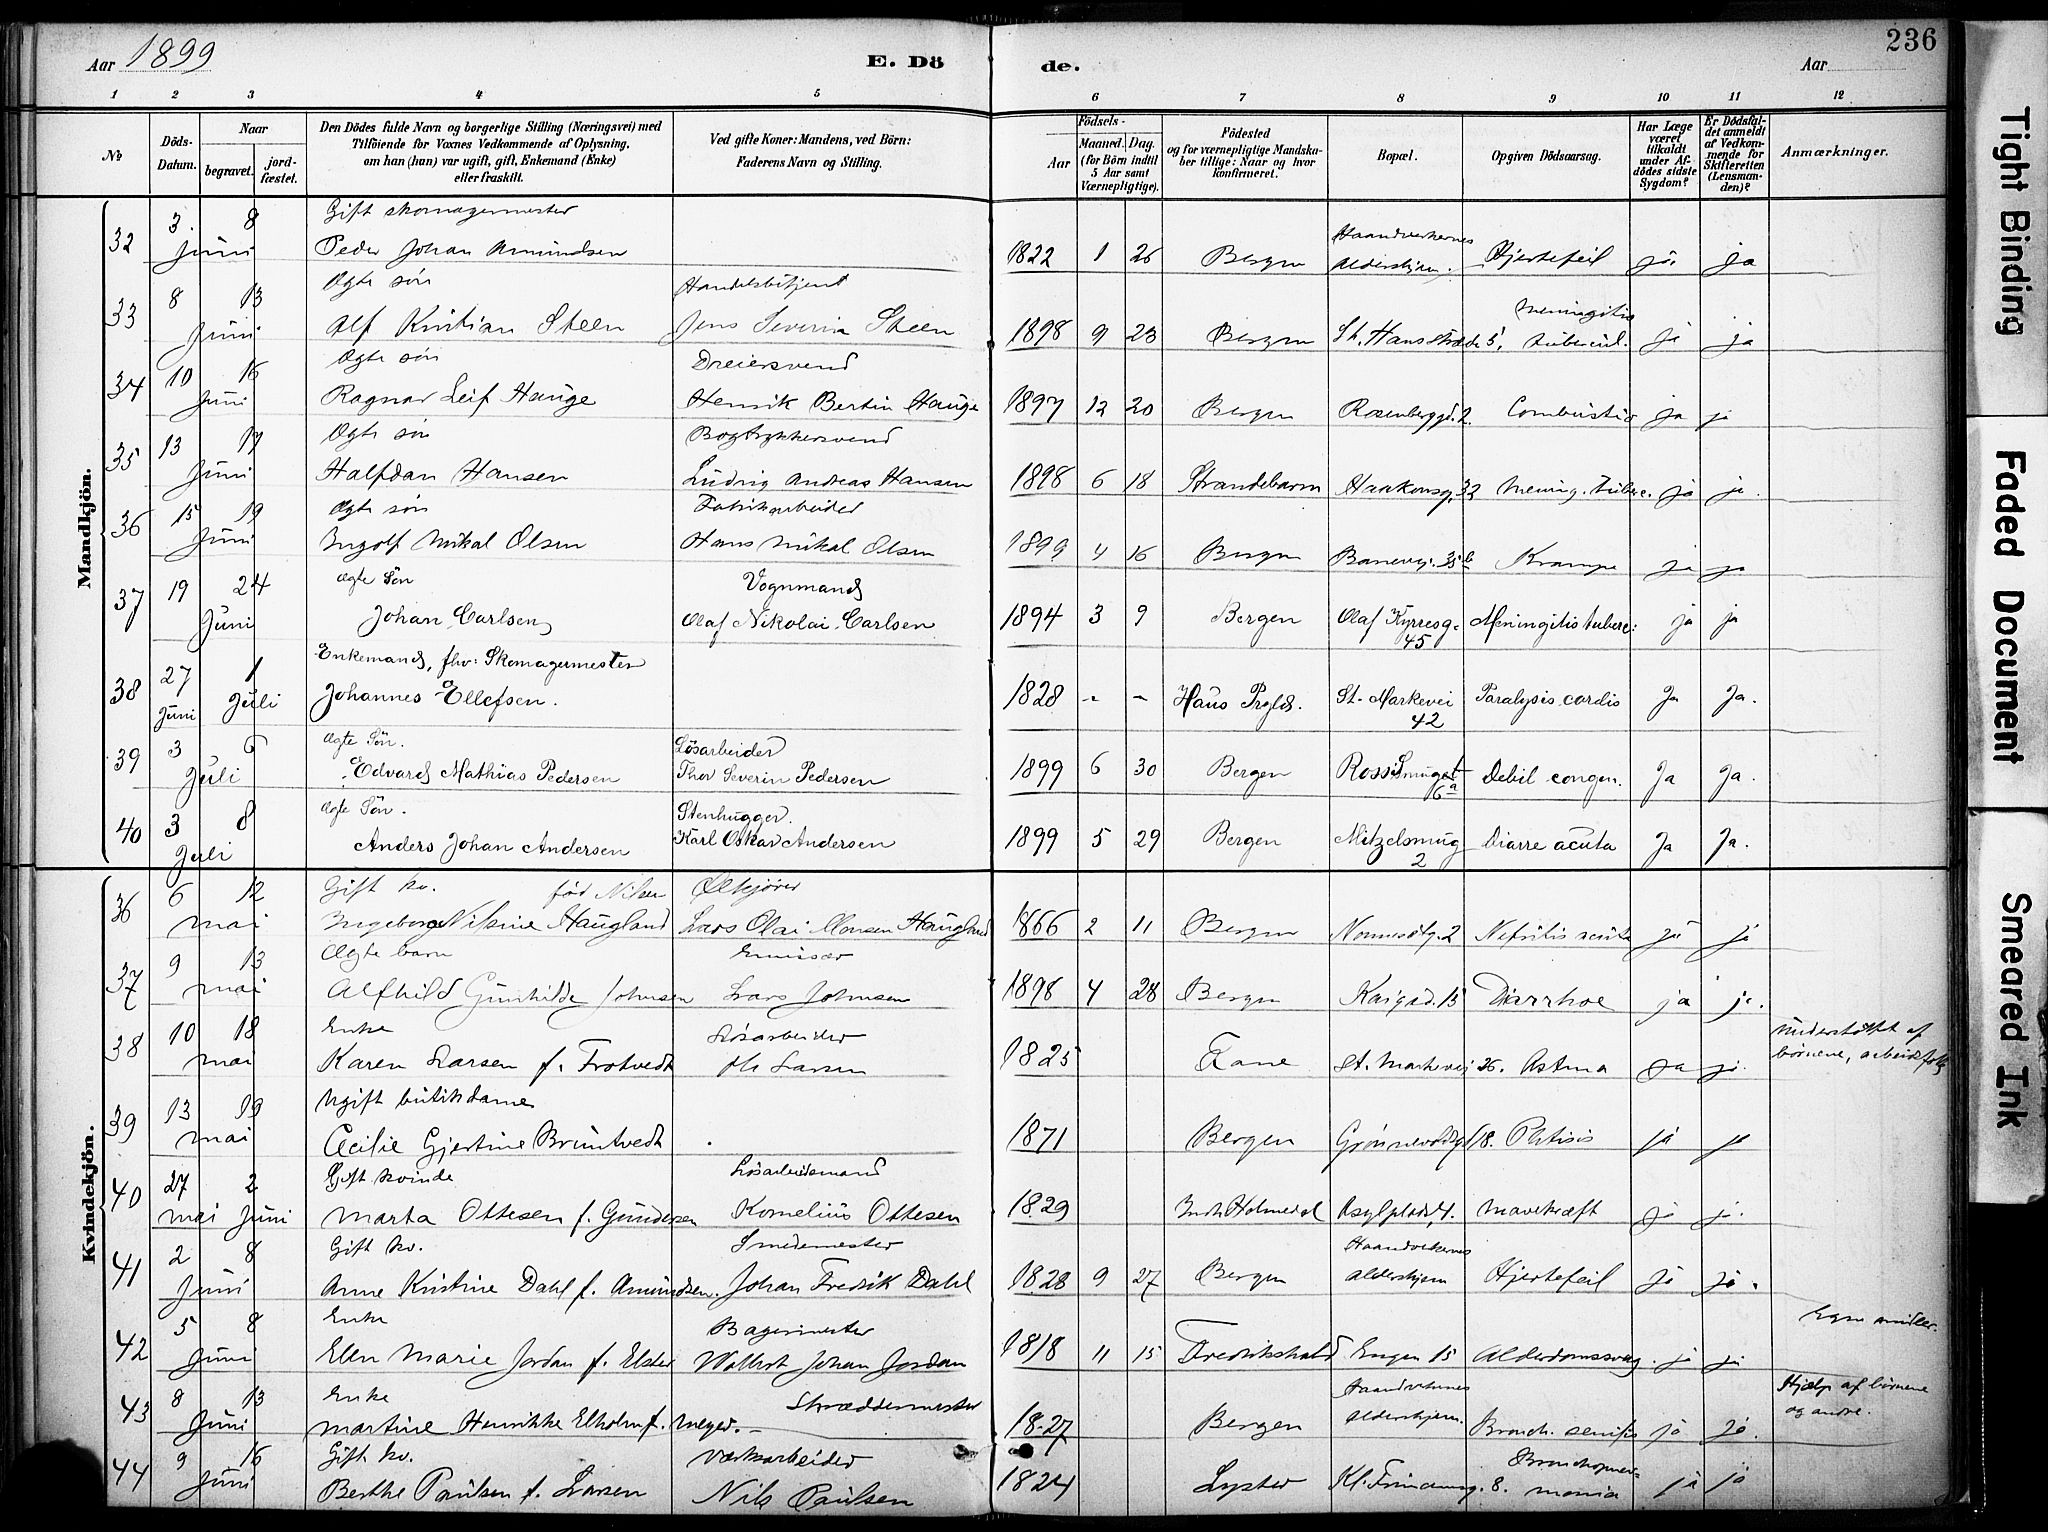 Aar 1899 E. Dö de. Aar 236
1 2 3 4 5 6 7 8 9 10 11 12
№ Döds-Datum. Naar begravet. jordfæstet. Den Dödes fulde Navn og borgerlige Stilling (Næringsvei) med Tilföiende for Voxnes Vedkommende af Oplysning, om han (hun) var ugift, gift, Enkemand (Enke) eller fraskilt. Ved gifte Koner: Mandens, ved Börn: Faderens Navn og Stilling. Födsels- Aar Maaned. Dag. (for Börn indtil 5 Aar samt Værnepligtige). Födested og for værnepligtige Mandskaber tillige: Naar og hvor konfirmeret. Bopæl. Opgiven Dödsaarsag. Har Læge været tilkaldt under Afdödes sidste Sygdom? Er Dödsfaldet anmeldt af Vedkommende for Skifteretten (Lensmanden)? Anmærkninger.
Mandkjön.
32 3. 8 Juni Gift skomagermester
Peder Johan Amundsen 1822 1 26 Bergen Haandverkernes Aldershjem. Hjertefeil ja. ja
33 8 13 Juni Ægte sön Handelsbetjent
Alf Kristian Steen Jens Severin Steen 1898 9 23 Bergen St. Hansstræde 5, Meningitis tubercul. ja ja
34 10 16 Juni Ægte sön Dreiersvend
Ragnar Leif Hauge Henrik Bertin Hauge 1897 12 20 Bergen Rosenberggd. 2. Combustio ja ja
35 13 17 Juni Ægte sön Bogtrykkersvend
Halfdan Hansen Ludvig Andreas Hansen 1898 6 18 Strandebarm Haakonsg. 32 Mening. tuberc. ja ja.
36 15 19 Juni Ægte sön Fabrikarbeider
Ingolf Mikal Olsen Hans Mikal Olsen 1899 4 16 Bergen Banevej. 35 b Krampe ja ja
37 19 24 Juni Ægte Sön Vognmand
Johan Carlsen Olaf Nikolai Carlsen 1894 3 9 Bergen Olaf Kyrresg. 45 Meningitis tuberc: ja ja
38 27 Juni 1 Juli Enkemand, fhv: Skomagermester
Johannes Ellefsen. 1828 - - Haus Prgld. St. Markevei 42 Paralysis cordis Ja Ja.
39 3 6 Juli Ægte Sön. Lösarbeider
Edvard Mathias Pedersen Thor Severin Pedersen 1899 6 30 Bergen Rossesmuget 6a Debil congen. Ja Ja.
40 3 8 Juli Ægte Sön. Stenhugger.
Anders Johan Andersen Karl Oskar Andersen 1899 5 29 Bergen Mitzelsmug 2 Diarre acuta Ja Ja.
Kvindekjön.
36 6 12 Mai Gift kv. föd Nilsen Ølkjører
Ingeborg Nilsine Haugland Lars Olai Monsen Haugland 1866 2 11 Bergen Nonnestg. 2 Nefritis acuta ja ja
37 9 13 Mai Ægte barn Emissær
Alfhild Gunhilde Johnsen Lars Johnsen 1898 4 28 Bergen Kaigad. 15 Diarrhoe ja ja.
38 10 18 Mai Enke Løsarbeider
Karen Larsen f. Frotvedt Ole Larsen 1825 Fane St. Markevei 26. Astma ja ja. Understøttet af børnene, arbeidsfolk
39 13 19 Mai Ugift butikdame
Cecilie Gjertine Bruntvedt 1871 Bergen Grønnevoldg. 18. Phtisis ja ja
40 27 Mai 2 Juni Gift kvinde Løsarbeidsmand
Marta Ottesen f. Gundersen Kornelius Ottesen 1829 Indr. Holmedal Asylplads 4. Mavekræft ja ja.
41 2 8 Juni Gift kv. Smedemester
Anne Kristine Dahl f. Amundsen. Johan Fredrik Dahl 1828 9 27 Bergen Haandverkernes aldershjem Hjertefeil ja ja.
42 5 8 Juni Enke Bagermester
Ellen Marie Jordan f. Elster Wollert Johan Jordan 1818 11 15 Fredrikshald Engen 15 Alderdomssvag. ja ja Egne midler.
43 8 13 Juni Enke Skræddermester
Martine Henrikke Elholm f. Meyer. 1827 Bergen Haandverkernes aldershjem. Bronch. senilis ja ja. Hjælp af børnene og andre.
44 9 16 Juni Gift kv. Værksarbeider
Berthe Paulsen f. Larsen Nils Paulsen 1824 Lyster Kl. 8. Bronchopneumonia ja ja
Tight Binding
Faded Document
Smeared Ink